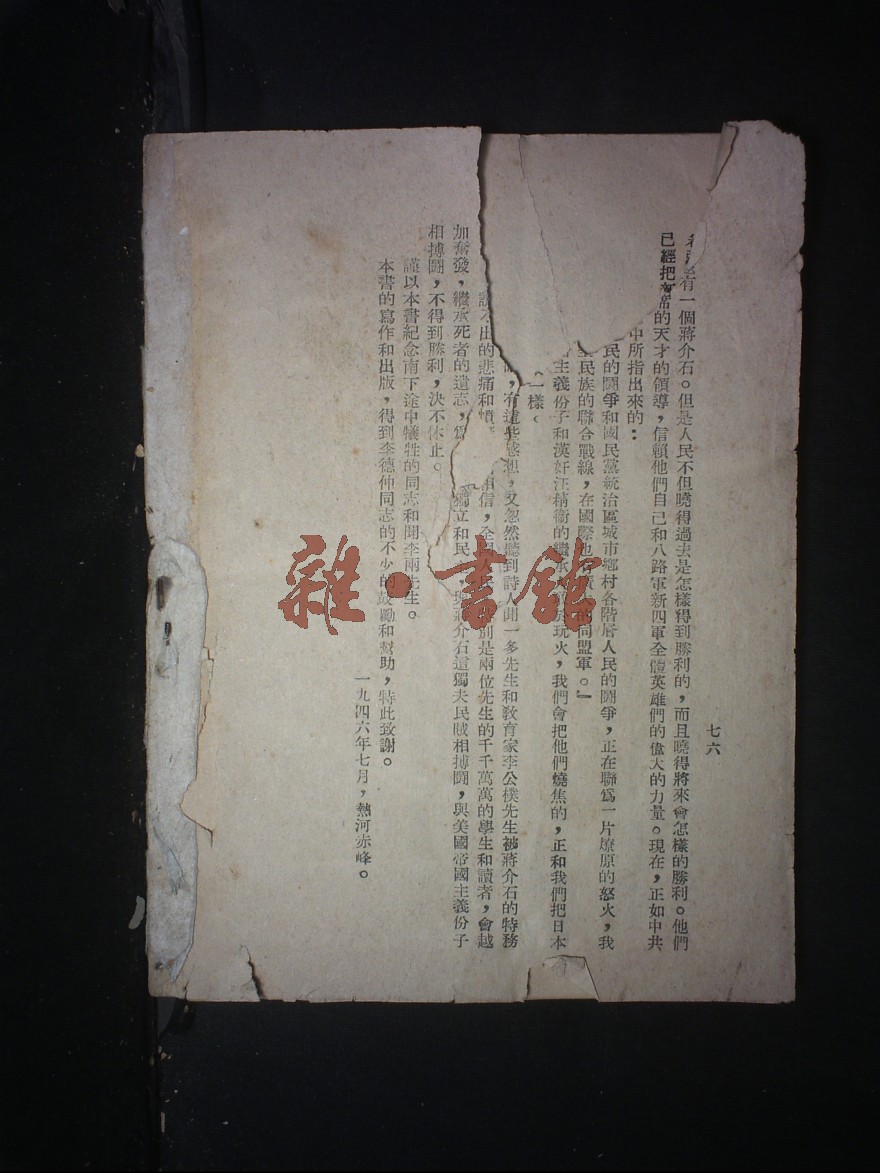 七六
有一個蔣介石。但是人民不但曉得過去是怎樣得到勝利的，而且曉得將來會怎樣的勝利。他們
已經把席的天才的領導，信賴他們自己和八路軍新四軍全體英雄們的偉大的力量。現在，正如中共
中所指出來的：
民的鬪爭和國民黨統治區城市鄉村各階層人民的鬪爭，正在聯爲一片燎原的怒火，我
民族的聯合戰線，在國際也有的同盟軍。』
主義份子和漢奸汪精衛的繼承玩火，我們會把他們燒焦的，正和我們把日本
一樣
有這些感想，又忽然聽到詩人聞一多先生和敎育家李公樸先生被蔣介石的特務
說不出的悲痛和憤信，全國人民別是兩位先生的千千萬萬的學生和讀者，會越
加奮發，繼承死者的遺志，獨立和民與蔣介石這獨夫民賊相搏鬪，與美國帝國主義份子
相搏鬪，不得到勝利，決不休止。
謹以本書紀念南下途中犧牲的同志和聞李兩先生。
本書的寫作和出版，得到李德仲同志的不少的鼓勵和幫助，特此致謝。
一九四六年七月，熱河赤峰。
雜·書館